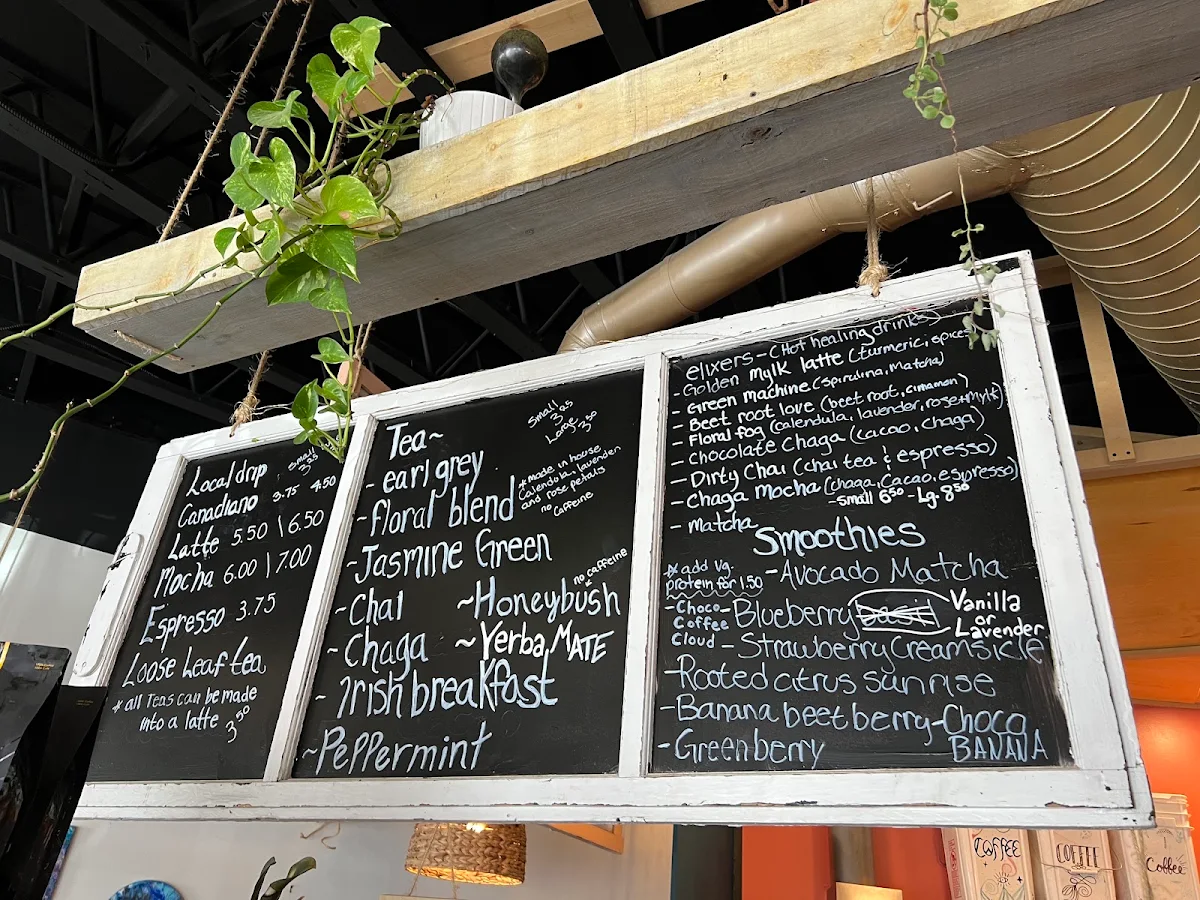 Local drip small
Canadiano 3.75 4.50
Latte 5.50 | 6.50
Mocha 6.00 | 7.00
Espresso 3.75
Loose Leaf tea
* all Teas can be made
into a latte 3.50
Tea~
small 3.25
Large 3.50
- earl grey
- floral blend
* made in house
Calendula, lavender
and rose petals
no caffeine
- Jasmine Green
- Chai
no caffeine
~Honeybush
- Chaga ~Yerba MATE
- Irish breakfast
~Peppermint
elixers - (Hot healing drinks)
- Golden mylk latte (turmeric, spices
- Green machine (spirulina, matcha)
- Beet root love (beet root, cinamon)
- Floral fog (calendula, lavender, rose+mylk)
- Chocolate Chaga (cacao, chaga)
- Dirty Chai (chai tea & espresso)
- Chaga mocha (chaga, cacao, espresso)
- matcha - small 6.50 - Lg. 8.50
Smoothies
* add vg.
protein for 1.50
- Avocado Matcha
- Choco-
Coffee
Cloud
- Blueberry Vanilla
or
Lavender
- Strawberry Creamsicle
- Rooted citrus sunrise
- Banana beet berry - Choco
BANANA
- Greenberry
Coffee
COFFEE
Coffee